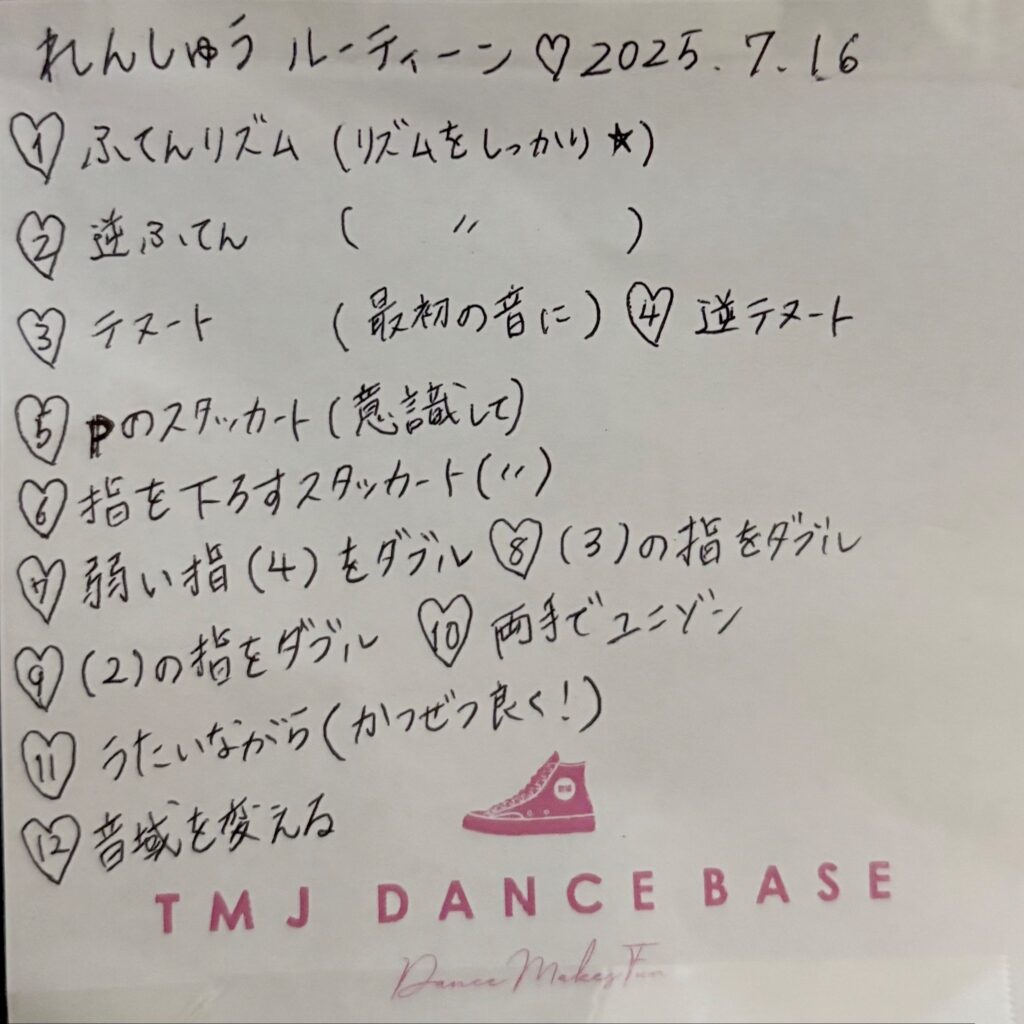 れんしゅう ルーティーン♡2025.7.16
① ふてんリズム (リズムをしっかり★)
② 逆ふてん ( 〃 )
③ テヌート (最初の音に) ④ 逆テヌート
⑤ Pのスタッカート(意識して)
⑥ 指を下ろすスタッカート(〃)
⑦ 弱い指(4)をダブル ⑧ (3)の指をダブル
⑨ (2)の指をダブル ⑩ 両手でユニゾン
⑪ うたいながら(かつぜつ良く!)
⑫ 音域を変える
TMJ DANCE BASE
Dance Makes Fun